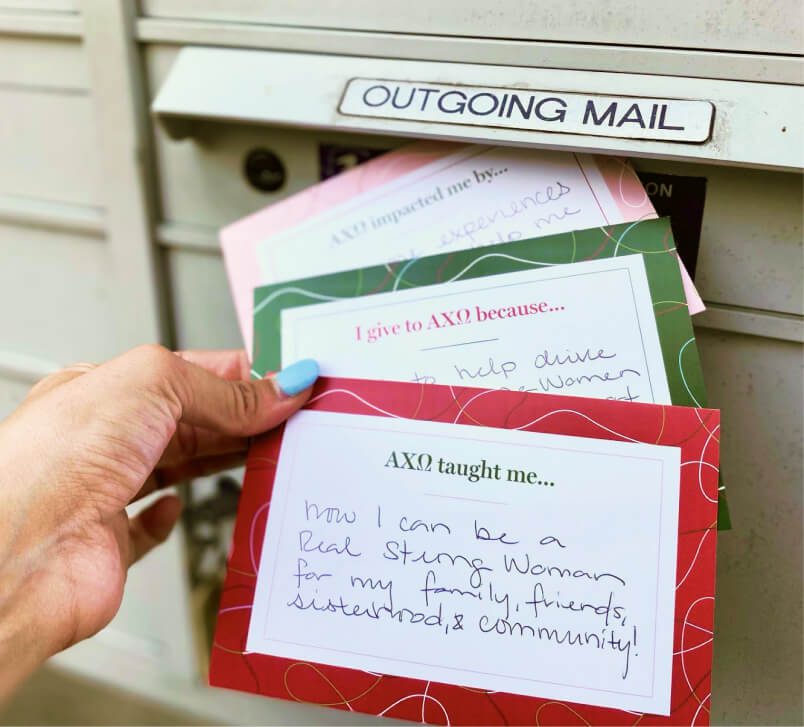 OUTGOING MAIL
ON
ΑΧΩ impacted me by...
experiences
help me
I give to ΑΧΩ because...
to help drive
Women
ΑΧΩ taught me...
how I can be a
Real Strong Woman
for my family, friends,
sisterhood, & community!